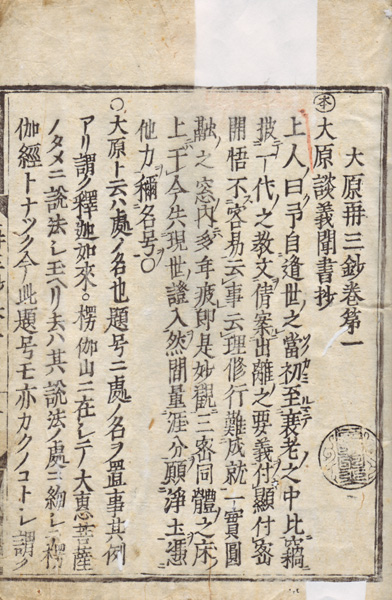 大原冊三鈔卷第一
㊍大原談義聞書抄
上人曰予自逢世之當初至衰老之中比竊
披一代之教文倩案出離之要義付顯付密
開悟不容易云事云理修行難成就一實圓
融之窓内多年疲即是妙觀三密同體之床
上于今失現世證入然間量涯分願淨土憑
他力稱名号○
○大原ト云ハ處ノ名也題号ニ處ノ名ヲ置事其例
アリ謂ク釋迦如來。楞伽山ニ在シテ大惠菩薩
ノタメニ說法シ玉ヘリ去ハ其說法ノ處ニ約シテ楞
伽經トナツク今此題号モ亦カクノコトシ謂ク